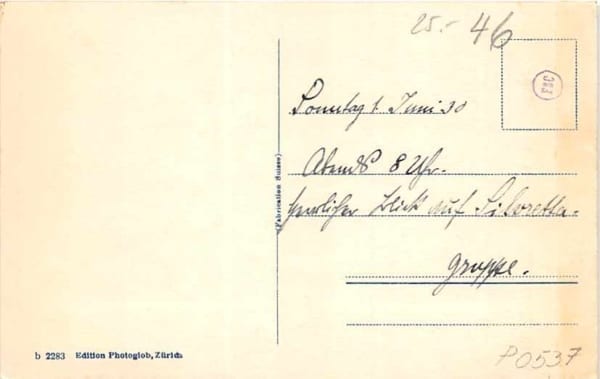 25.- 46
Sonntag 1. Juni 30
Abends 8 Uhr.
herrlicher Blick auf Silvretta-
gruppe.
(Fabrication Suisse)
b 2283 Edition Photoglob, Zürich
P0537